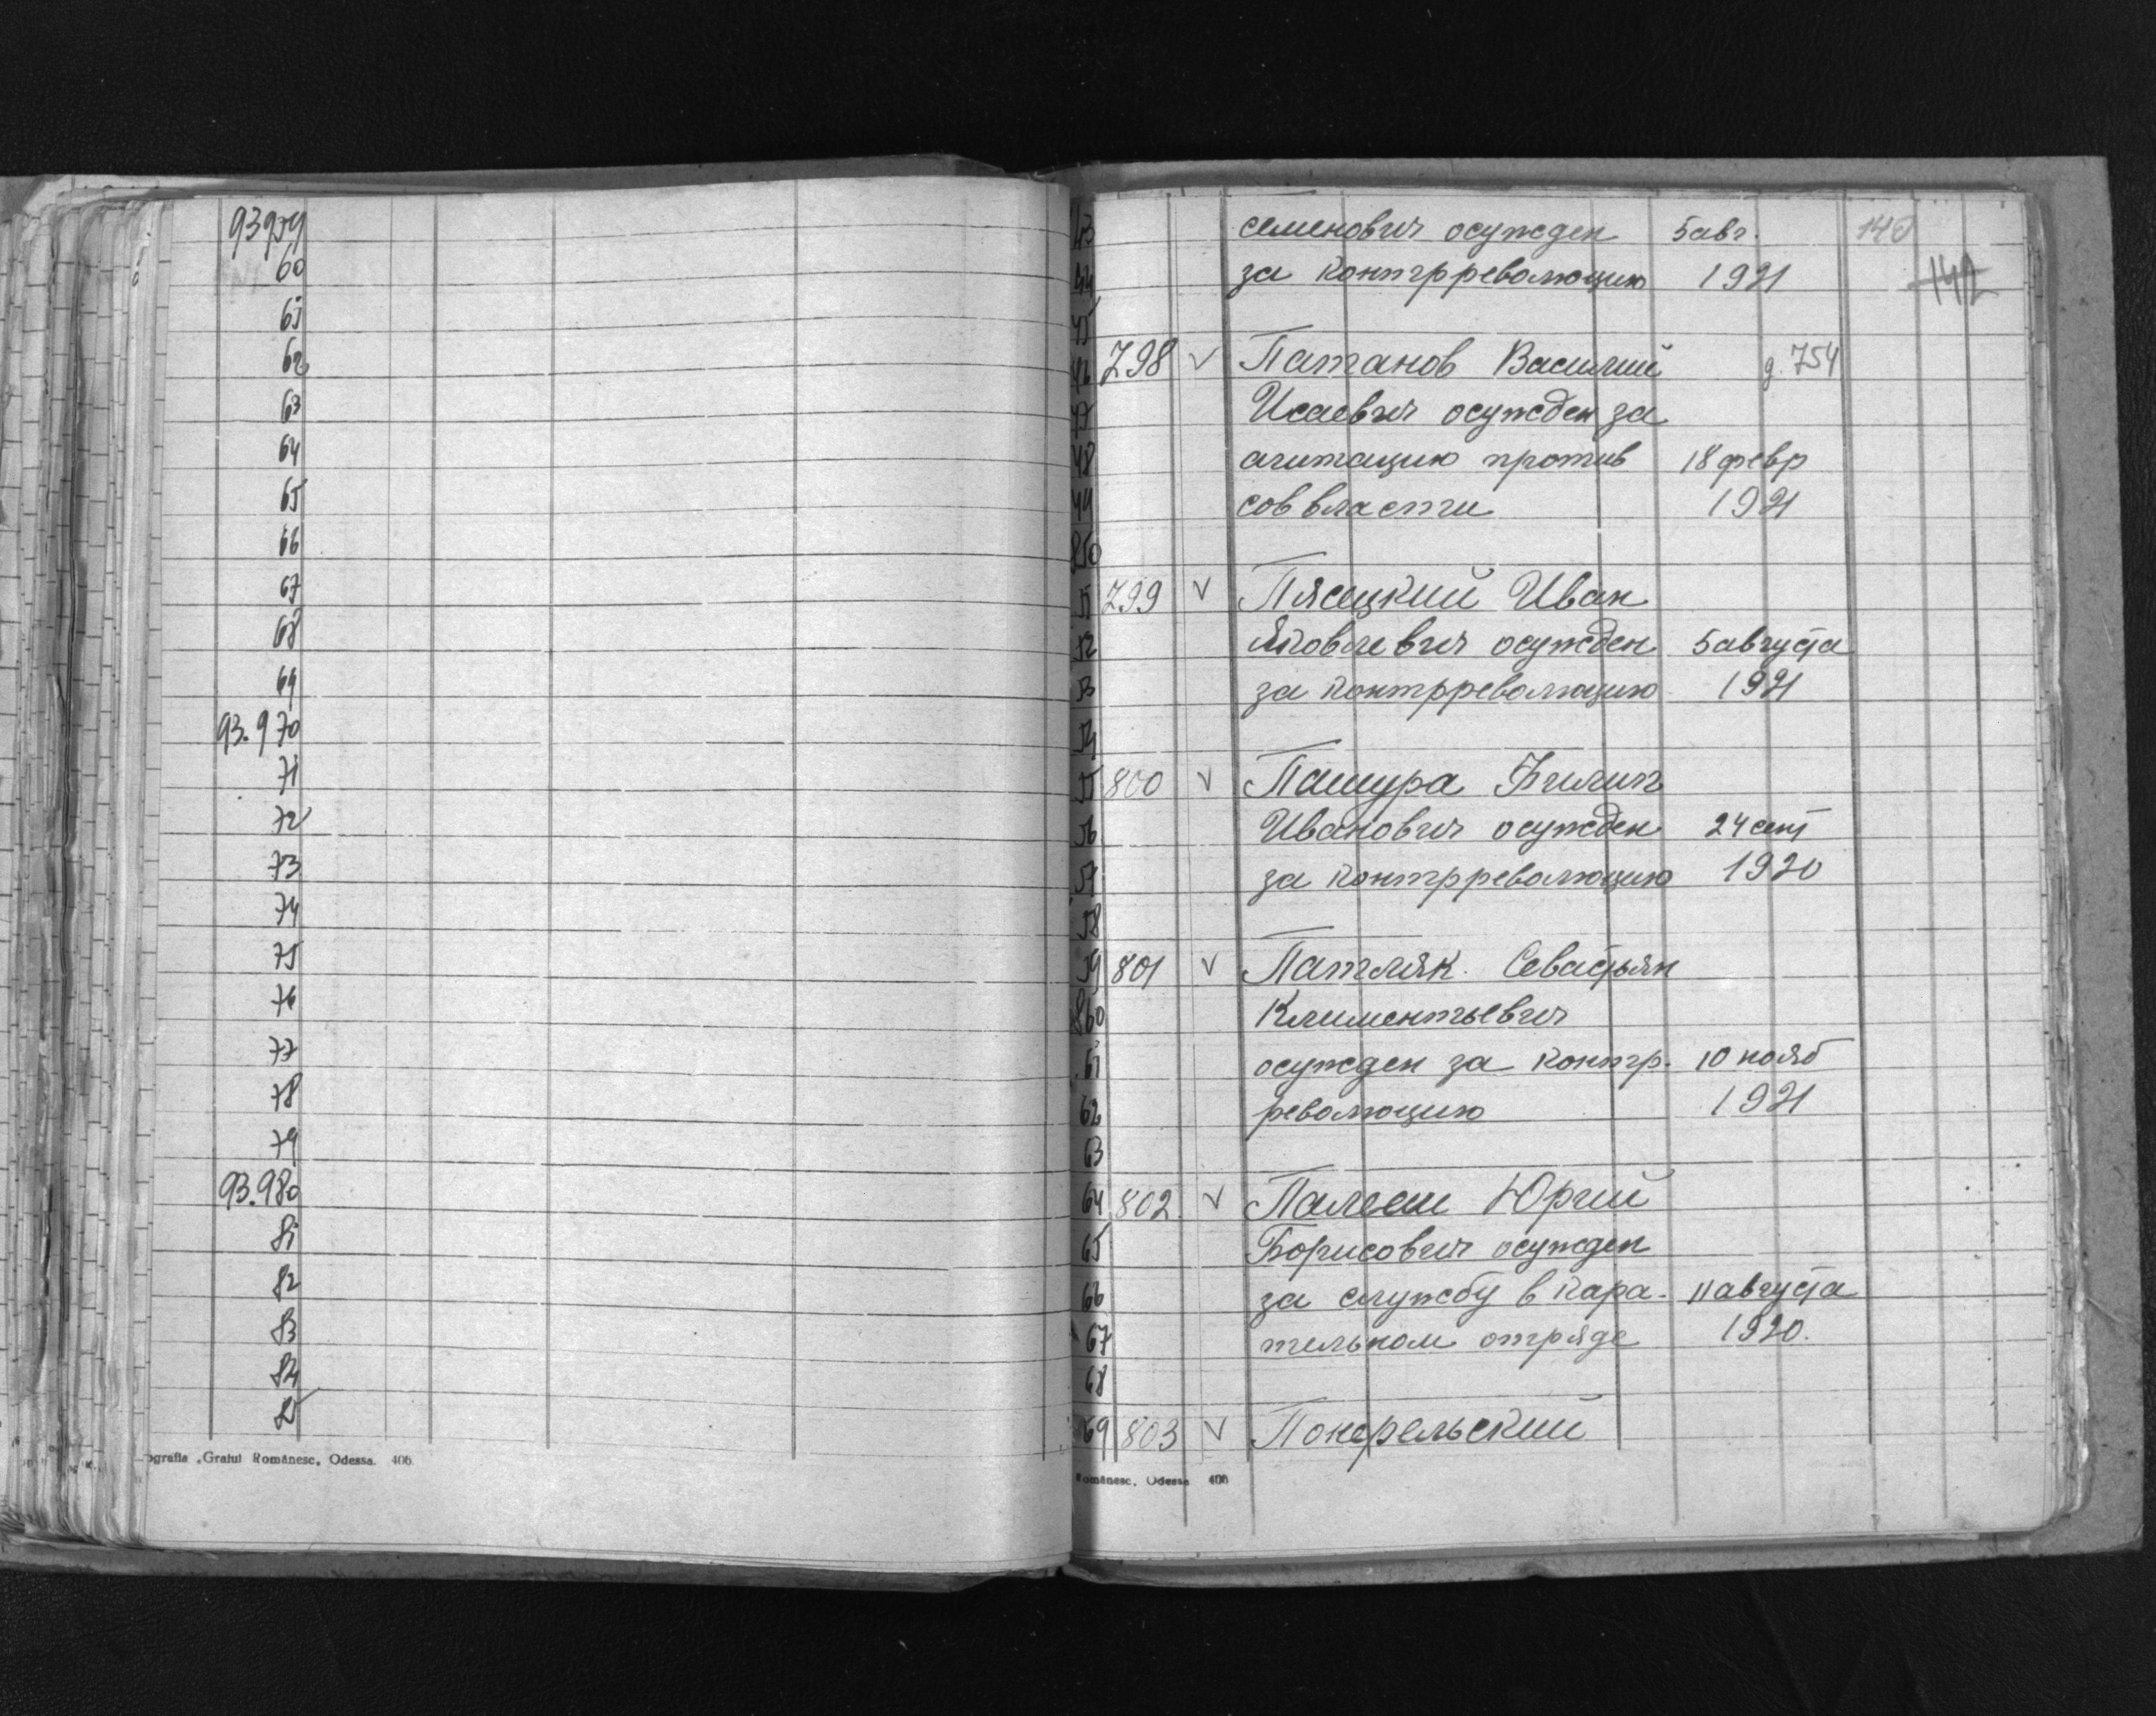 93959
60
61
62
63
64
65
66
67
68
69
93.970
71
72
73
74
75
76
77
78
79
93.980
81
82
83
84
85
ografia „Graiul Românesc„ Odessa. 406
43 семенович осужден 5 авг. 140
44 за контрреволюцию 1921 142
45
46 798 v Патанов Василий д. 754
47 Исаевич осужден за
48 агитацию против 18 февр
49 сов власти 1921
850
51 799 v Пясецкий Иван
52 Яковлевич осужден 5 августа
53 за контрреволюцию 1921
54
55 800 v Пашура Филип
56 Иванович осужден 24 сент
57 за контрреволюцию 1920
58
59 801 v Патляк Севастьян
860 Климентьевич
61 осужден за контр. 10 нояб
62 революцию 1921
63
64 802. v Палеш Юрий
65 Борисович осужден
66 за службу в кара- 11 августа
67 тельном отряде 1920.
68
69 803 v
Românesc, Odessa 406